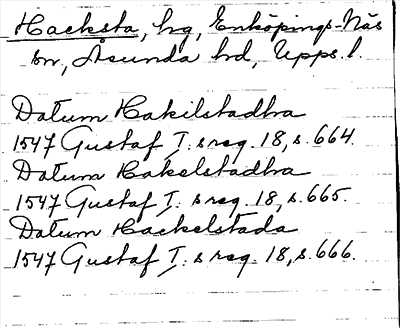 Hacksta, hg, Enköpings-Näs
sn, Åsunda hd, Upps. l.
Datum Hakilstadha
1547 Gustaf I: s reg. 18, s. 664.
Datum Hakelstadha
1547 Gustaf I: s reg. 18, s. 665.
Datum Hackelstada
1547 Gustaf I: s reg. 18, s. 666.